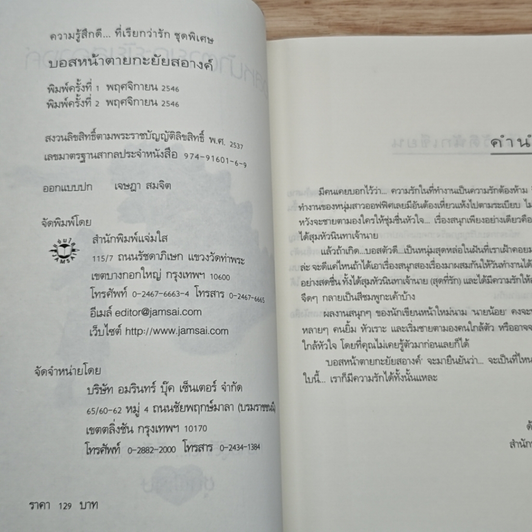 ความรู้สึกดี... ที่เรียกว่ารัก ชุดพิเศษ
บอสหน้าตายกะยัยสอางค์
พิมพ์ครั้งที่ 1 พฤศจิกายน 2546
พิมพ์ครั้งที่ 2 พฤศจิกายน 2546
สงวนลิขสิทธิ์ตามพระราชบัญญัติลิขสิทธิ์ พ.ศ. 2537
เลขมาตรฐานสากลประจำหนังสือ 974-91601-6-9
ออกแบบปก เจษฎา สมจิต
จัดพิมพ์โดย
สำนักพิมพ์แจ่มใส
115/7 ถนนรัชดาภิเษก แขวงวัดท่าพระ
เขตบางกอกใหญ่ กรุงเทพฯ 10600
โทรศัพท์ 0-2467-6663-4 โทรสาร 0-2467-6665
อีเมล์ editor@jamsai.com
เว็บไซต์ http://www.jamsai.com
จัดจำหน่ายโดย
บริษัท อมรินทร์ บุ๊ค เซ็นเตอร์ จำกัด
65/60-62 หมู่ 4 ถนนชัยพฤกษ์มาลา (บรมราชชนนี)
เขตตลิ่งชัน กรุงเทพฯ 10170
โทรศัพท์ 0-2882-2000 โทรสาร 0-2434-1384
ราคา 129 บาท
คำน
มีคนเคยบอกไว้ว่า... ความรักในที่ทำงานเป็นความรักต้องห้าม
ทำงานของหนุ่มสาวออฟฟิศเลยมีอันต้องเหี่ยวแห้งไปตามระเบียบ ไม่
หวังจะชายตามองใครให้ชุ่มชื่นหัวใจ... เรื่องสนุกเพียงอย่างเดียวคือ
ได้สุมหัวนินทาเจ้านาย
แล้วถ้าเกิด...บอสตัวดี...เป็นหนุ่มสุดหล่อในฝันที่เราเฝ้าคอยม
ล่ะ จะดีแค่ไหนถ้าได้เอาเรื่องสนุกสองเรื่องมาผสมกันให้วันทำงานได้
อย่างสดชื่น ทั้งได้สุมหัวนินทาเจ้านาย (สุดที่รัก) และได้มีความรักให้
จืดๆ กลายเป็นสีชมพูกะเค้าบ้าง
ผลงานสนุกๆ ของนักเขียนหน้าใหม่นาม 'นายน้อย' คงจะ
หลายๆ คนยิ้ม หัวเราะ และเริ่มชายตามองคนใกล้ตัว หรืออาจจ
ใกล้หัวใจ โดยที่คุณไม่เคยรู้ตัวมาก่อนเลยก็ได้
'บอสหน้าตายกะยัยสอางค์' จะมายืนยันว่า... จะเป็นที่ไหน
ใบนี้... เราก็มีความรักได้ทั้งนั้นแหละ
สำนัก